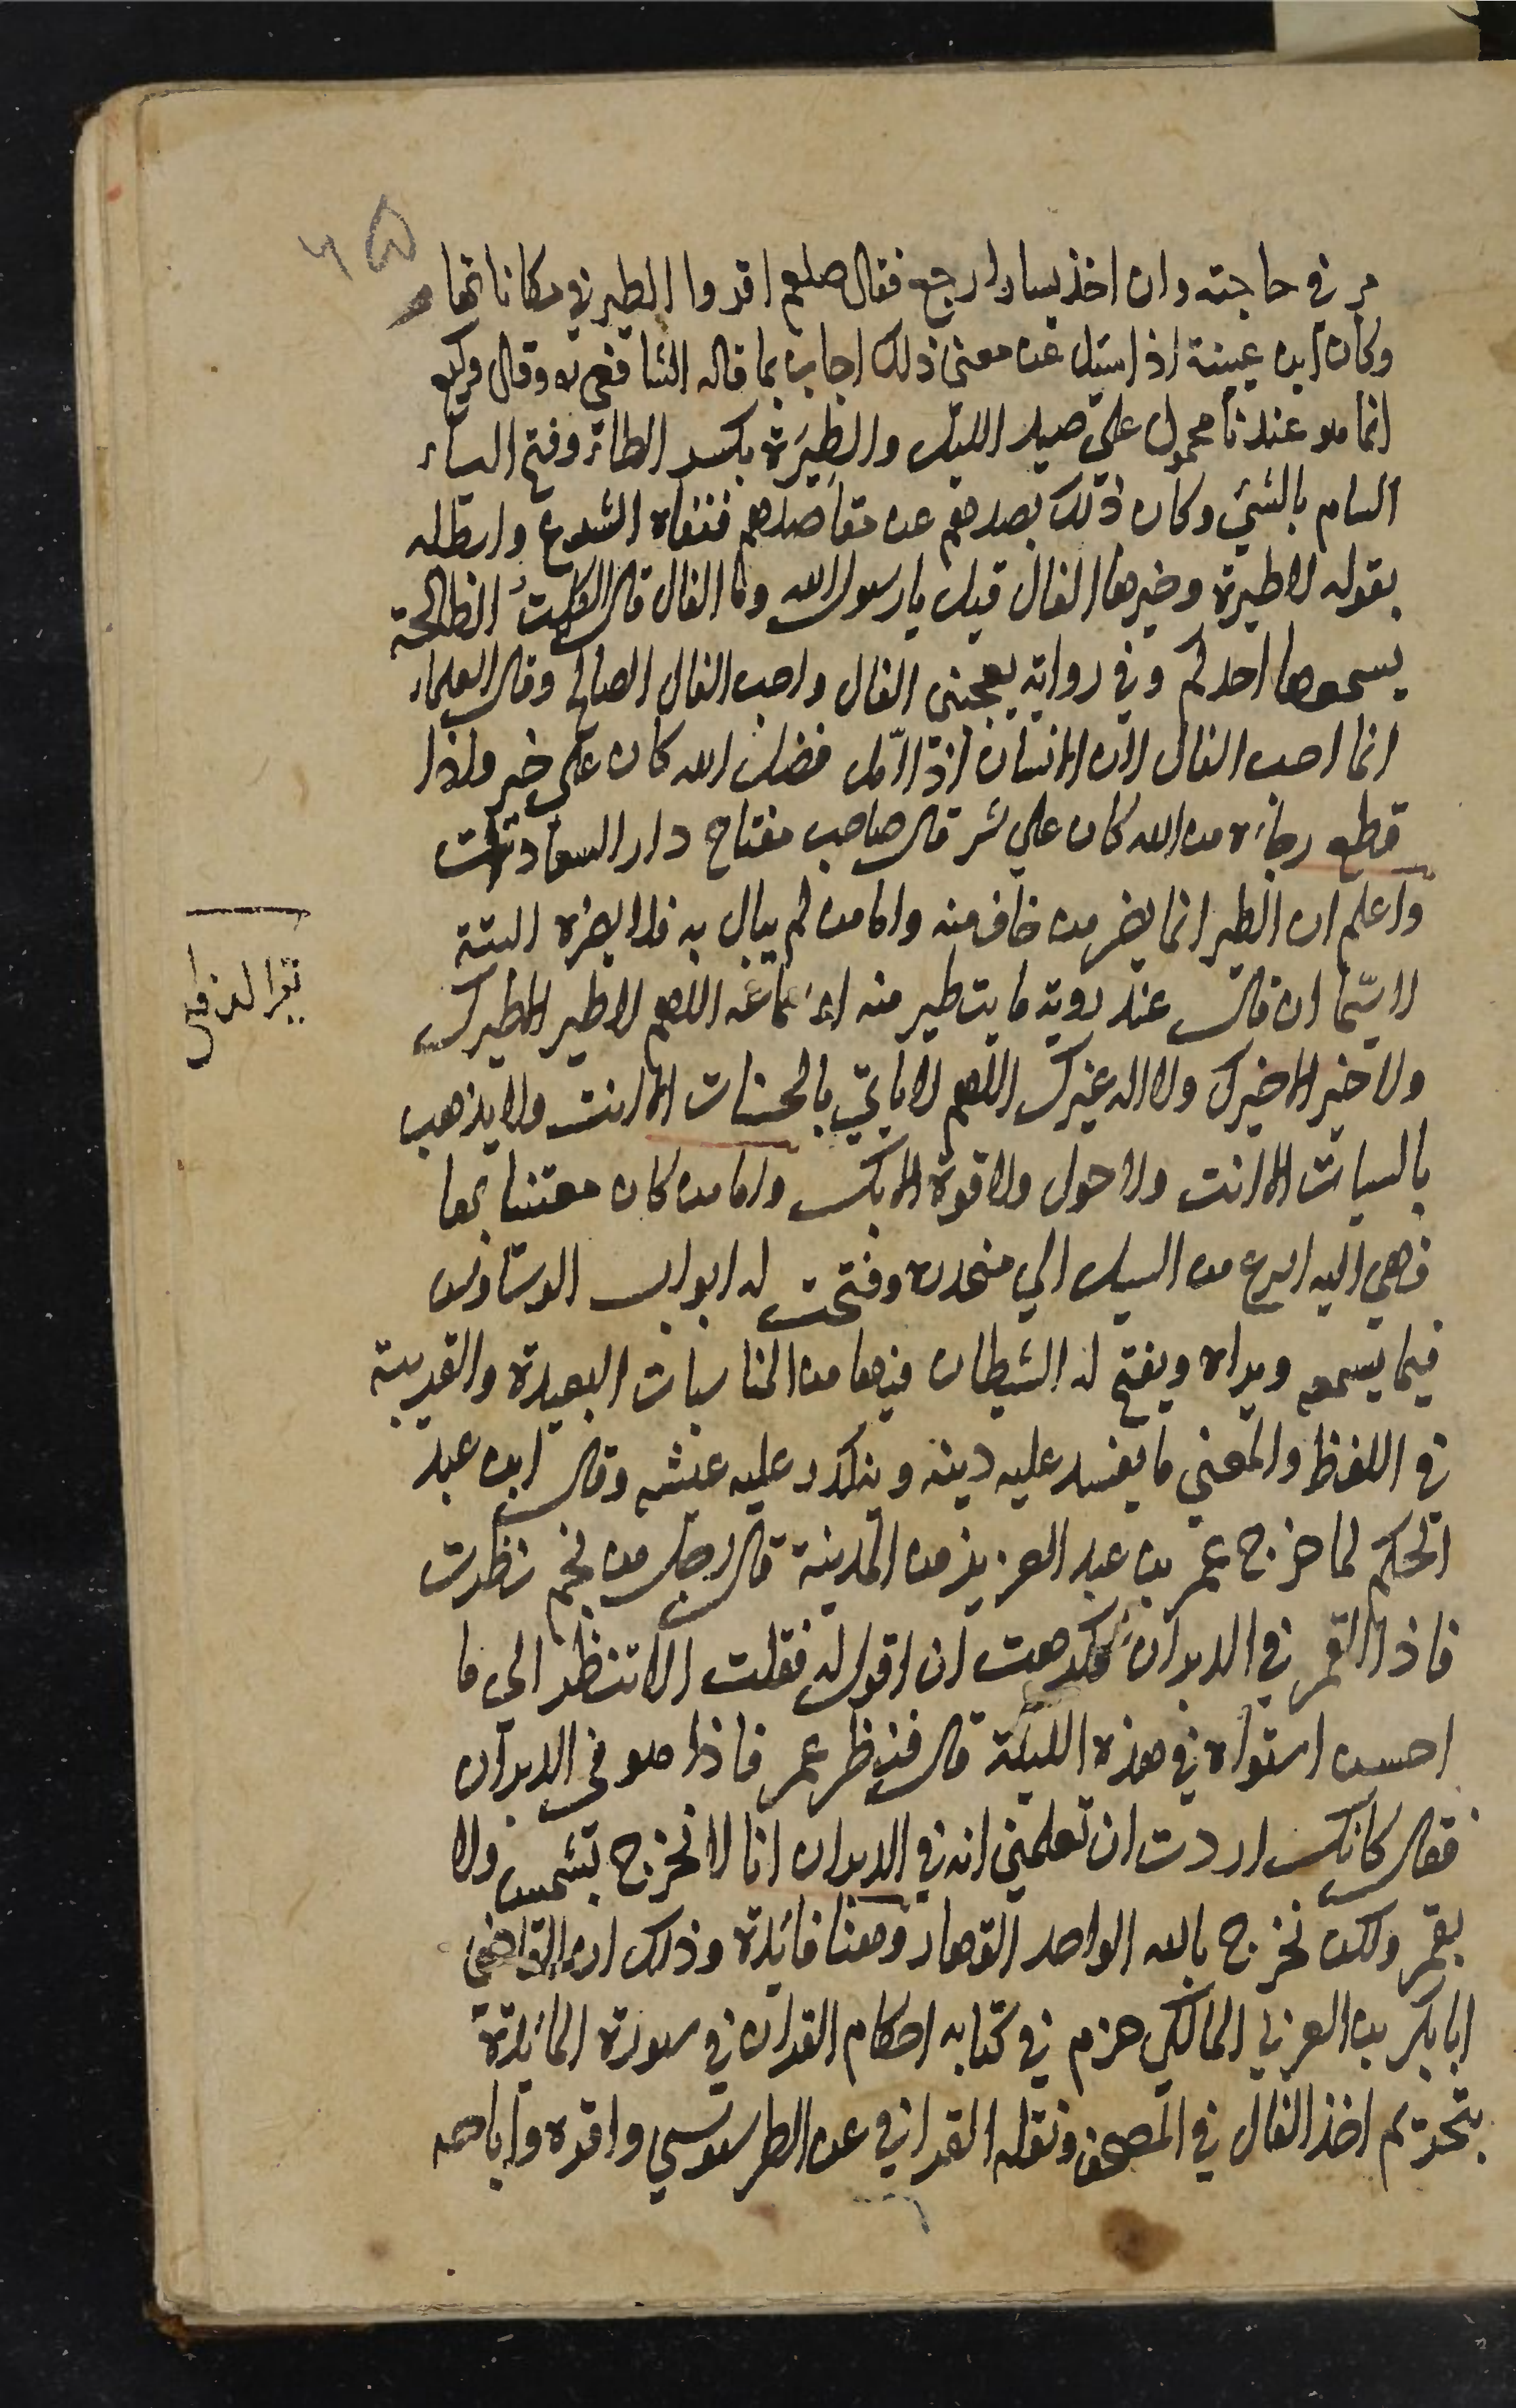 ٦٥
مر في حاجته وان اخذ يسارا رجع فقال صلعم اقروا الطير في مكاناتها
وكان ابن عيينة اذا سئل عن معنى ذلك اجاب بما قاله الشافعي ره وقال وكيع
انما هو عندنا محمول على صيد الليل والطِيَرة بكسر الطاء وفتح الياء
التيام بالشئ وكان ذلك يصدهم عن مقاصدهم فنفاه الشرع وابطله
بقوله لا طيرة وخيرها الفال قيل يا رسول الله وما الفال قال الكلمة الصالحة
يسمعها احدكم وفي رواية يعجبني الفال واحب الفال الصالح وقال العلماء
انما احب الفال لان الانسان اذا امّل فضل الله كان على خير واذا
قطع رجائه من الله كان علي شر قال صاحب مفتاح دار السعادة
واعلم ان الطير انما يضر من خاف منه واما من لم يبال به فلا يضره البتة
لا سيّما ان قال عند روية ما يتطير منه او سماعه اللهم لا طير الا طيرك
ولا خير الا خيرك ولا اله غيرك اللهم لا ياتي بالحسنات الا انت ولا يذهب
بالسيات الا انت ولا حول ولا قوة الا بك واما من كان معتنيا بها
فهي اليه اسرع من السيل الي منحدره وفتحت له ابواب الوساوس
فيما يسمعه ويراه ويفتح له الشيطان فيها من المناسبات البعيدة والقريبة
في اللفظ والمعني ما يفسد عليه دينه وينكد عليه عيشه وقال ابن عبد
الحكم لما خرج عمر بن عبد العزيز من المدينة قال رجل من لخم نظرت
فاذا القمر في الدبران فكرهت ان اقول له فقلت الا تنظر الي ما
احسن استواه في هذه الليلة قال فنظر عمر فاذا هو في الدبران
فقال كانك اردت ان تعلمني انه في الدبران انا لا نخرج بشمس ولا
بقمر ولكن نخرج بالله الواحد القهار وهنا فائدة وذلك ان القاضي
ابا بكر بن العربي المالكي حزم في كتابه احكام القران في سورة المائدة
بتحريم اخذ الفال في المصحف ونقله القرافي عن الطرسوسي واقره واباحه